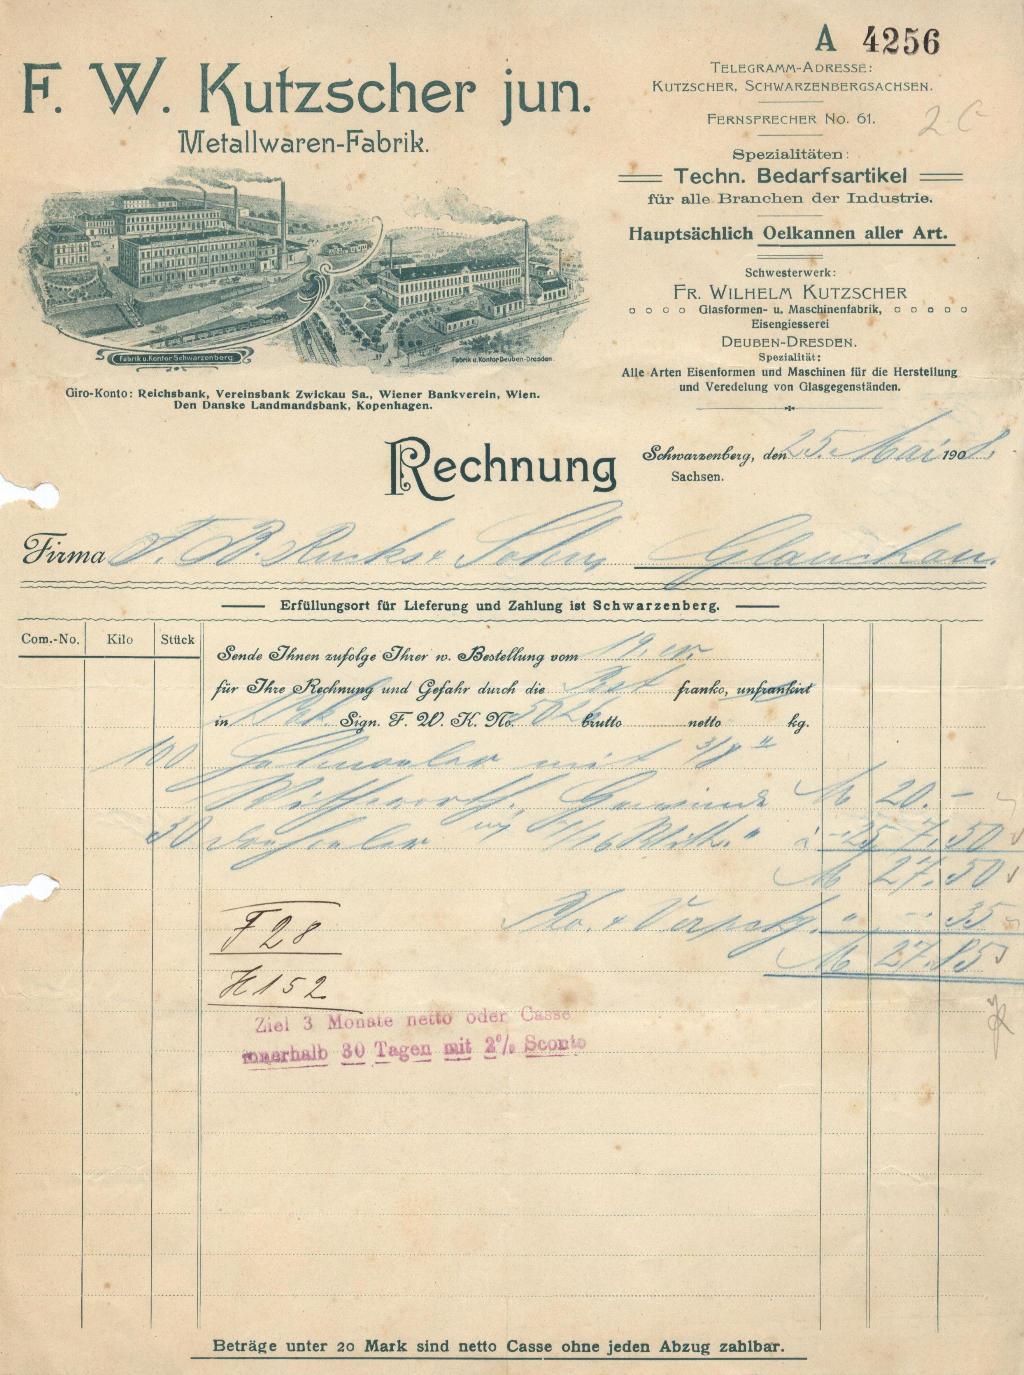 A 4256
F. W. Kutzscher jun.
Metallwaren-Fabrik.
Telegramm-Adresse:
Kutzscher, Schwarzenbergsachsen.
Fernsprecher No. 61.
Spezialitäten:
Techn. Bedarfsartikel
für alle Branchen der Industrie.
Hauptsächlich Oelkannen aller Art.
Schwesterwerk:
Fr. Wilhelm Kutzscher
Glasformen- u. Maschinenfabrik,
Eisengiesserei
Deuben-Dresden.
Spezialität:
Alle Arten Eisenformen und Maschinen für die Herstellung
und Veredelung von Glasgegenständen.
Fabrik u. Kontor Schwarzenberg
Fabrik u. Kontor Deuben-Dresden.
Giro-Konto: Reichsbank, Vereinsbank Zwickau Sa., Wiener Bankverein, Wien.
Den Danske Landmandsbank, Kopenhagen.
Rechnung
Schwarzenberg, den 25. Mai 1908.
Sachsen.
Firma F. B. Rucks & Sohn, Glauchau.
Erfüllungsort für Lieferung und Zahlung ist Schwarzenberg.
Com.-No. Kilo Stück
Sende Ihnen zufolge Ihrer w. Bestellung vom 19. cr.
für Ihre Rechnung und Gefahr durch die Post franko, unfrankirt
in 1 Pkt. Sign. F. W. K. No. 5026 brutto netto kg.
100 mit 3/8"
Withworth. Gewinde M 20.-
30 5/16 With." à -.25 7.50
M 27.50
Po. & Verpckg. " -.35
M 27.85
F 28
H 152
Ziel 3 Monate netto oder Casse
innerhalb 30 Tagen mit 2% Sconto
Beträge unter 20 Mark sind netto Casse ohne jeden Abzug zahlbar.